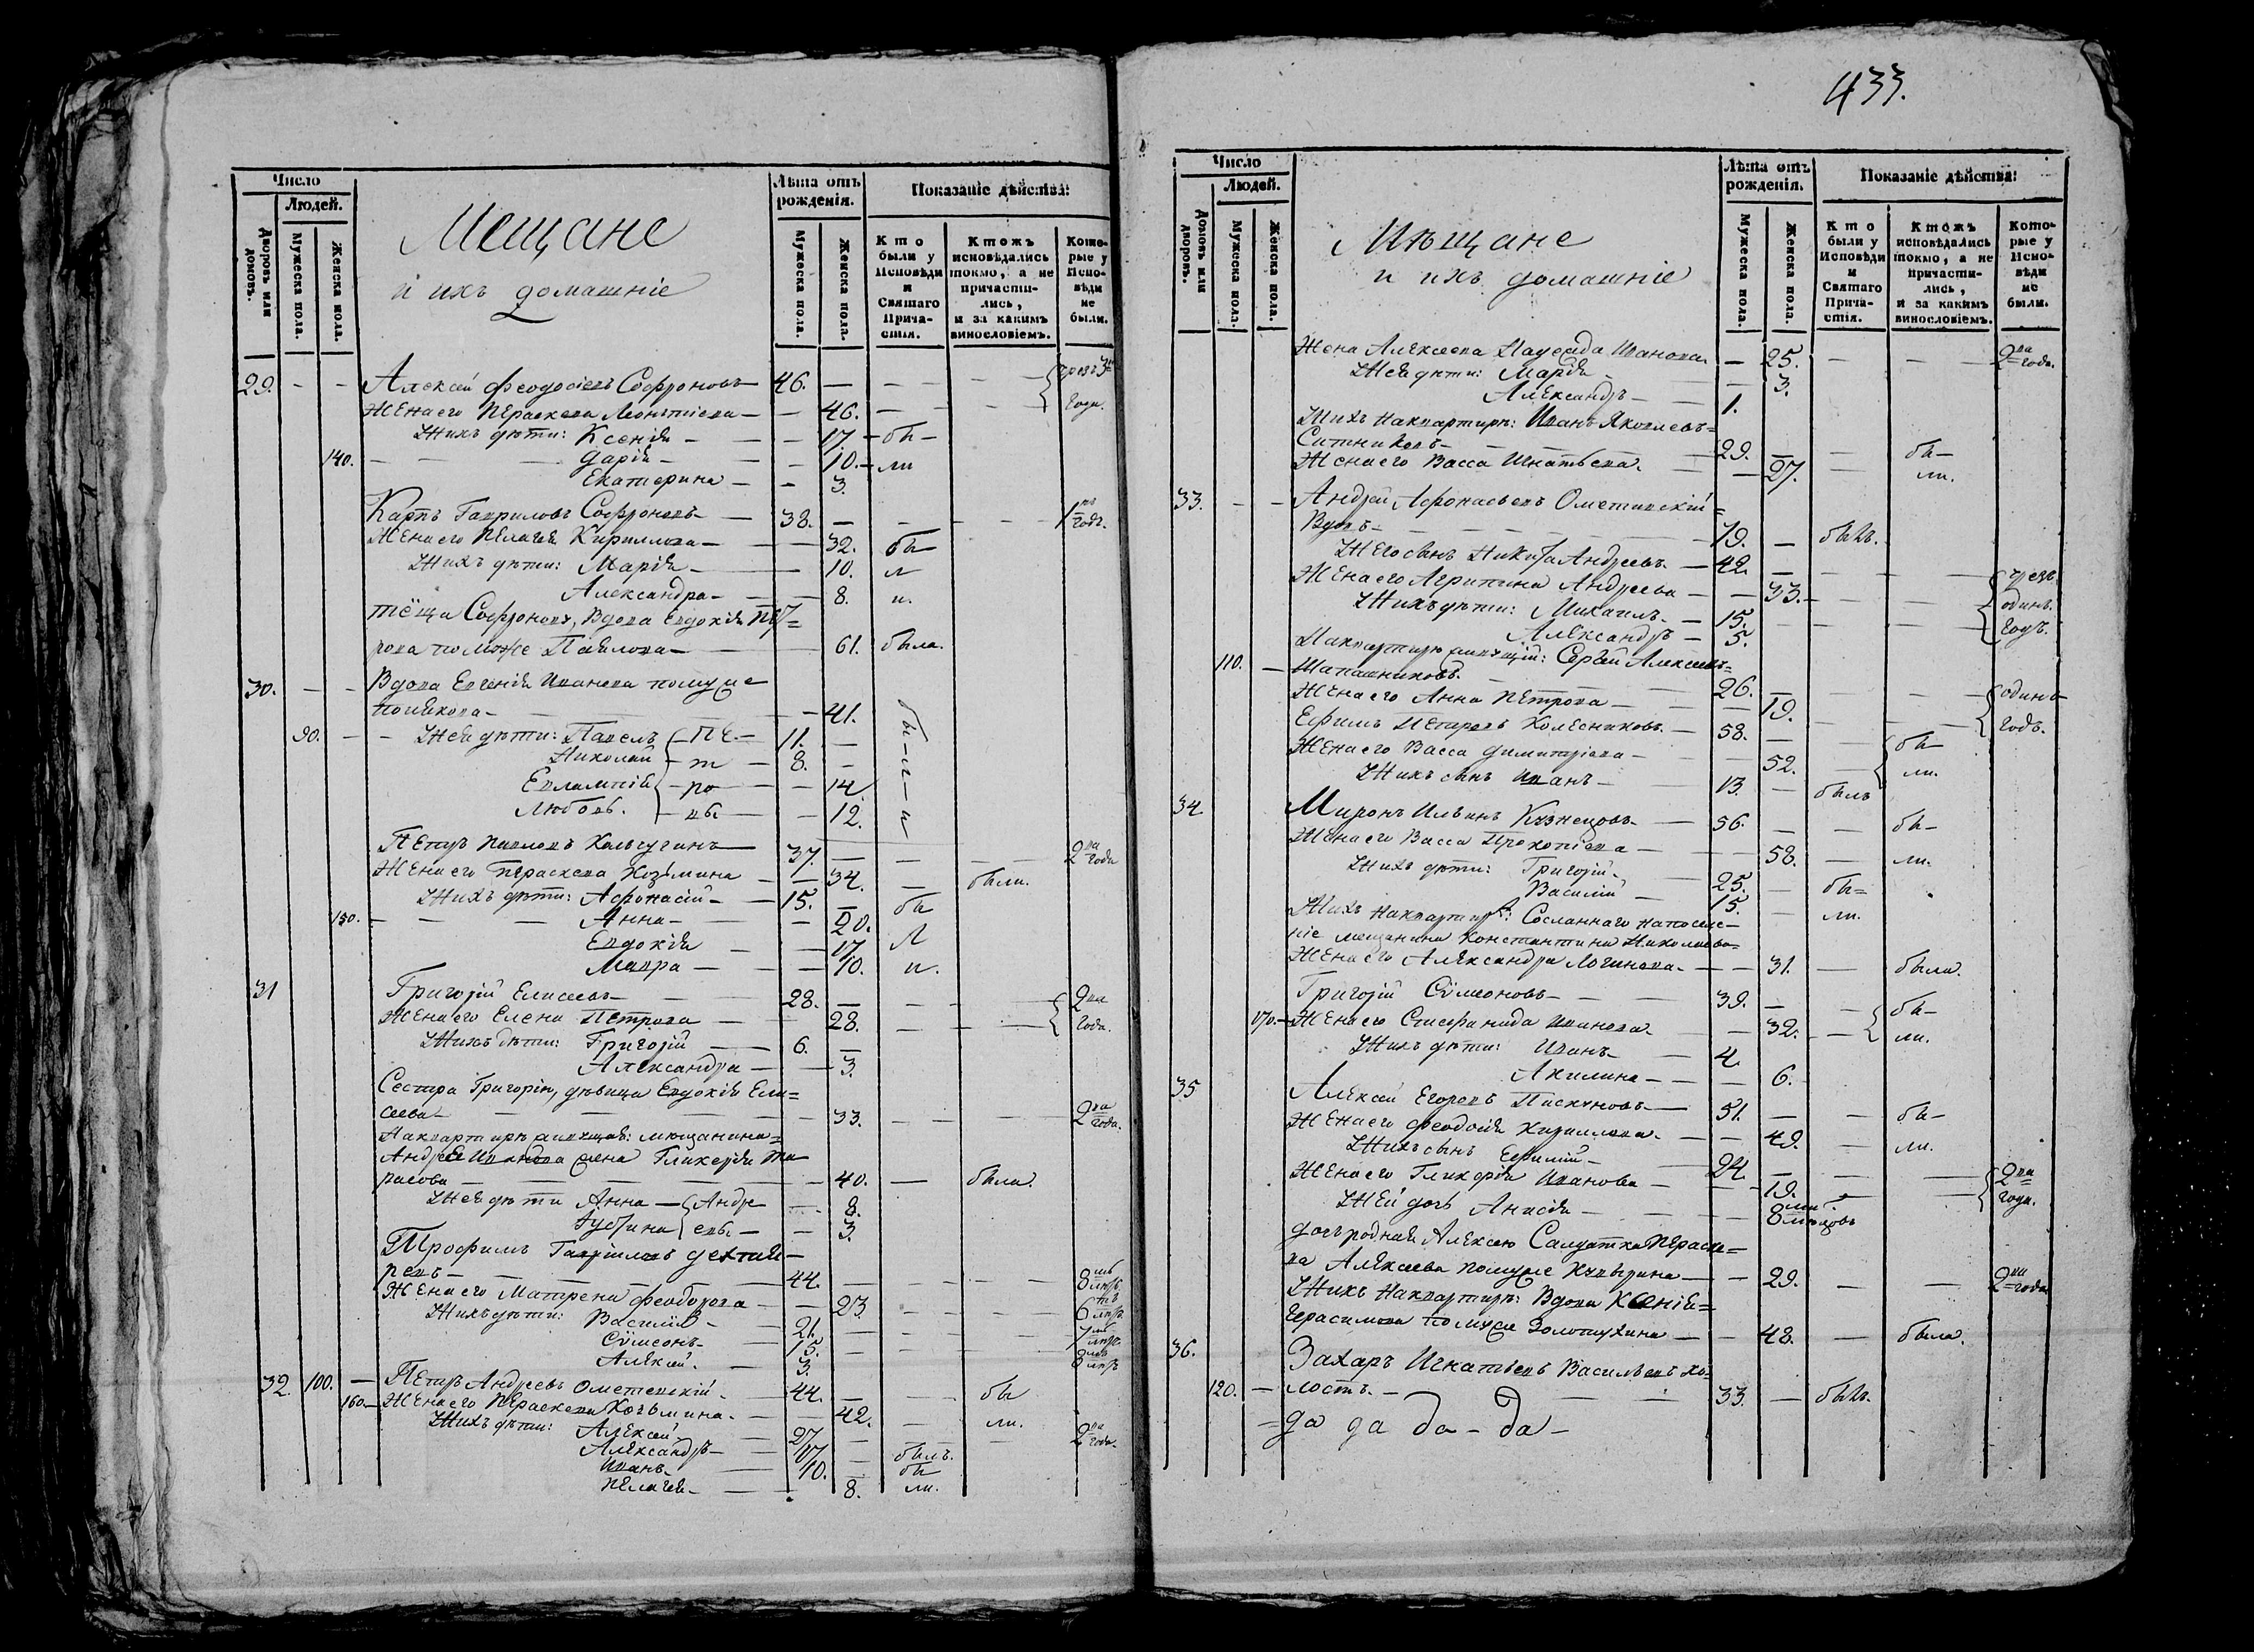 Число
Людей.
Дворовъ или домовъ.
Мужеска пола.
Женска пола.
Мещане
и ихъ домашніе
Лѣта отъ рожденія.
Мужеска пола.
Женска пола.
Показаніе дѣйства:
Кто были у Исповѣди и Святаго Причастія.
Ктожъ исповѣдались токмо, а не причастились, и за какимъ винословіемъ.
Которые у Исповѣди не были.
29. — — Алексей Феодосіевъ Софроновъ — 46. — — — —
Жена его Параскева Леонтіева — — 46. — — — года.
У нихъ дѣти: Ксенія — — — 17. — бы —
140. — — — Дарія — — — 10. — ли
Екатерина — — 3.
Карпъ Гавриловъ Софроновъ — 38. — — — — 1 годъ.
Жена его Пелагея Кириллова — — 32. бы —
У нихъ дѣти: Марія — — 10. л
Александра — — 8. и.
тёща Софронова, Вдова Евдокія Пет=
рова по мужѣ Павлова — — 61. была.
30. — — Вдова Евгенія Иванова по муже
Полякова — — — 41. бы — л — и
90. — — У ней дѣти: Павелъ — Пе — 11. —
Николай — т — 8. —
Евлампія — ро — — 14
Любовь. — вы. — — 12.
Петръ Павловъ Кольчугинъ — 37. — — — — 2ва года
Жена его Параскева Козьмина — — 34. — были.
У нихъ дѣти: Афонасій — — 15. — бы
150. — — — Анна — — — 20.
Евдокія — — 17 л
Мавра — — — 10. и.
31 Григорій Елисеевъ — — 28. — — — — 2ва
Жена его Елена Петрова — — 28. — — — года.
У нихъ дѣти: Григорій — — 6. —
Александра — — 3.
Сестра Григорія, дѣвица Евдокія Ели=
сеева — — — — 33. — — 2ва года.
На квартирѣ живущая: мещанина=
Андрея Иванова жена Гликерія Та
расова — — — — 40. — была.
У ней дѣти Анна — Андре — 8.
Іустина евы. — — 3.
Трофимъ Гавриловъ Дехтя=
ревъ — — — 44. — — — —
Жена его Матрена Феодорова — — 23 — — —
У нихъ дѣти: Василій — — 21. — — —
Сѵмеонъ — — 15. — — —
Алексей. — — 3.
32. 100. — Петръ Андреевъ Ометевскій — — 44. — — бы
160. — Жена его Параскева Козьмина — — 42. — ли.
У нихъ дѣти: Алексей — — 27 — — — 2ва года.
Александръ — — 17 — былъ.
Иванъ — — 10. — бы
Пелагея — — — 8. ли.
433.
Число
Людей.
Домовъ или дворовъ.
Мужеска пола.
Женска пола.
Мѣщане
и ихъ домашніе
Лѣта отъ рожденія.
Мужеска пола.
Женска пола.
Показаніе дѣйства:
Кто были у Исповѣди и Святаго Причастія.
Ктожъ исповѣдались токмо, а не причастились, и за какимъ винословіемъ.
Которые у Исповѣди не были.
Жена Алексеева Надежда Иванова — — 25. — — — 2ва года.
У ней дѣти: Марія — — — 3.
Александръ — — 1.
У нихъ на квартирѣ: Иванъ Яковлевъ=
Ситниковъ — — — 29. — — бы —
Жена его Васса Игнатьева. — — 27. — ли.
33. — — Андрей Афонасьевъ Ометевскій=
Вдовъ — — — — 79. — былъ.
У него сынъ Никита Андреевъ — 42. — — — — чрезъ
Жена его Агрипина Андреева — — 33. — — — одинъ
У нихъ дѣти: Михаилъ — — 15. — — — годъ.
Александръ — 5.
На квартирѣ живущій: Сергей Алексеевъ=
110. — Шапашниковъ. — — — 26. — — — — одинъ
Жена его Анна Петрова — — — 19. — — — годъ.
Ефимъ Петровъ Колесниковъ — 58. — — бы —
Жена его Васса Димитріева — — — 52. — ли.
У нихъ сынъ Иванъ — — 13. — былъ
34. Миронъ Ильинъ Кузнецовъ — — 56. — — бы —
Жена его Васса Прокопіева — — — 58. — ли.
У нихъ дѣти: Григорій — — 25. — бы =
Василій — 15. — ли.
У нихъ на квартирѣ: Сосланнаго на поселе=
ніе мещанина Константина Николаева=
Жена его Александра Логинова — — — 31. — была.
Григорій Сѵмеоновъ — — — 39. — — бы —
170. — Жена его Стефанида Иванова — — 32. — — ли.
У нихъ дѣти: Иванъ — — 4
Акилина — — — 6.
35 Алексей Егоровъ Пискуновъ — 51. — — бы —
Жена его Феодосія Кириллова — — — 49. — ли.
У нихъ сынъ Ефимій — — 24. — — — 2ва
Жена его Гликерія Иванова — — — 19. — — года.
У ней дочь Анисія — — — 8 мѣсяцовъ
дочь родная Алексею Салдатка Параске=
ва Алексеева по мужѣ Купырина — — 29. — — 2ва года
У нихъ на квартирѣ: Вдова Ксенія=
Герасимова по мужѣ Золотухина — — 48. — была.
36. Захаръ Игнатьевъ Васильевъ хо=
120. — лостъ. — — — 33. — былъ.
= да да да — да —